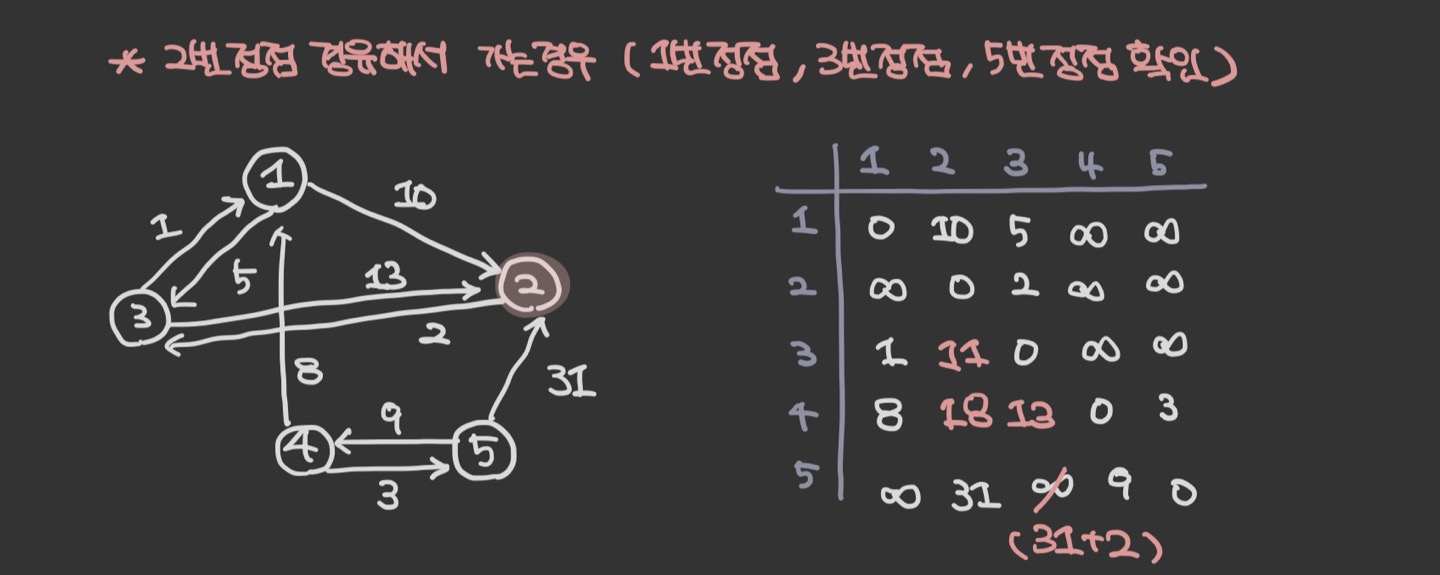 * 2번 정점 경유해서 가는경우 (1번 정점, 3번정점, 5번 정점 확인)
1
10
1
5
13
2
3
2
8
31
9
4
5
3
1 2 3 4 5
1 0 10 5 ∞ ∞
2 ∞ 0 2 ∞ ∞
3 1 11 0 ∞ ∞
4 8 18 13 0 3
5 ∞ 31 ∞ 9 0
(31+2)